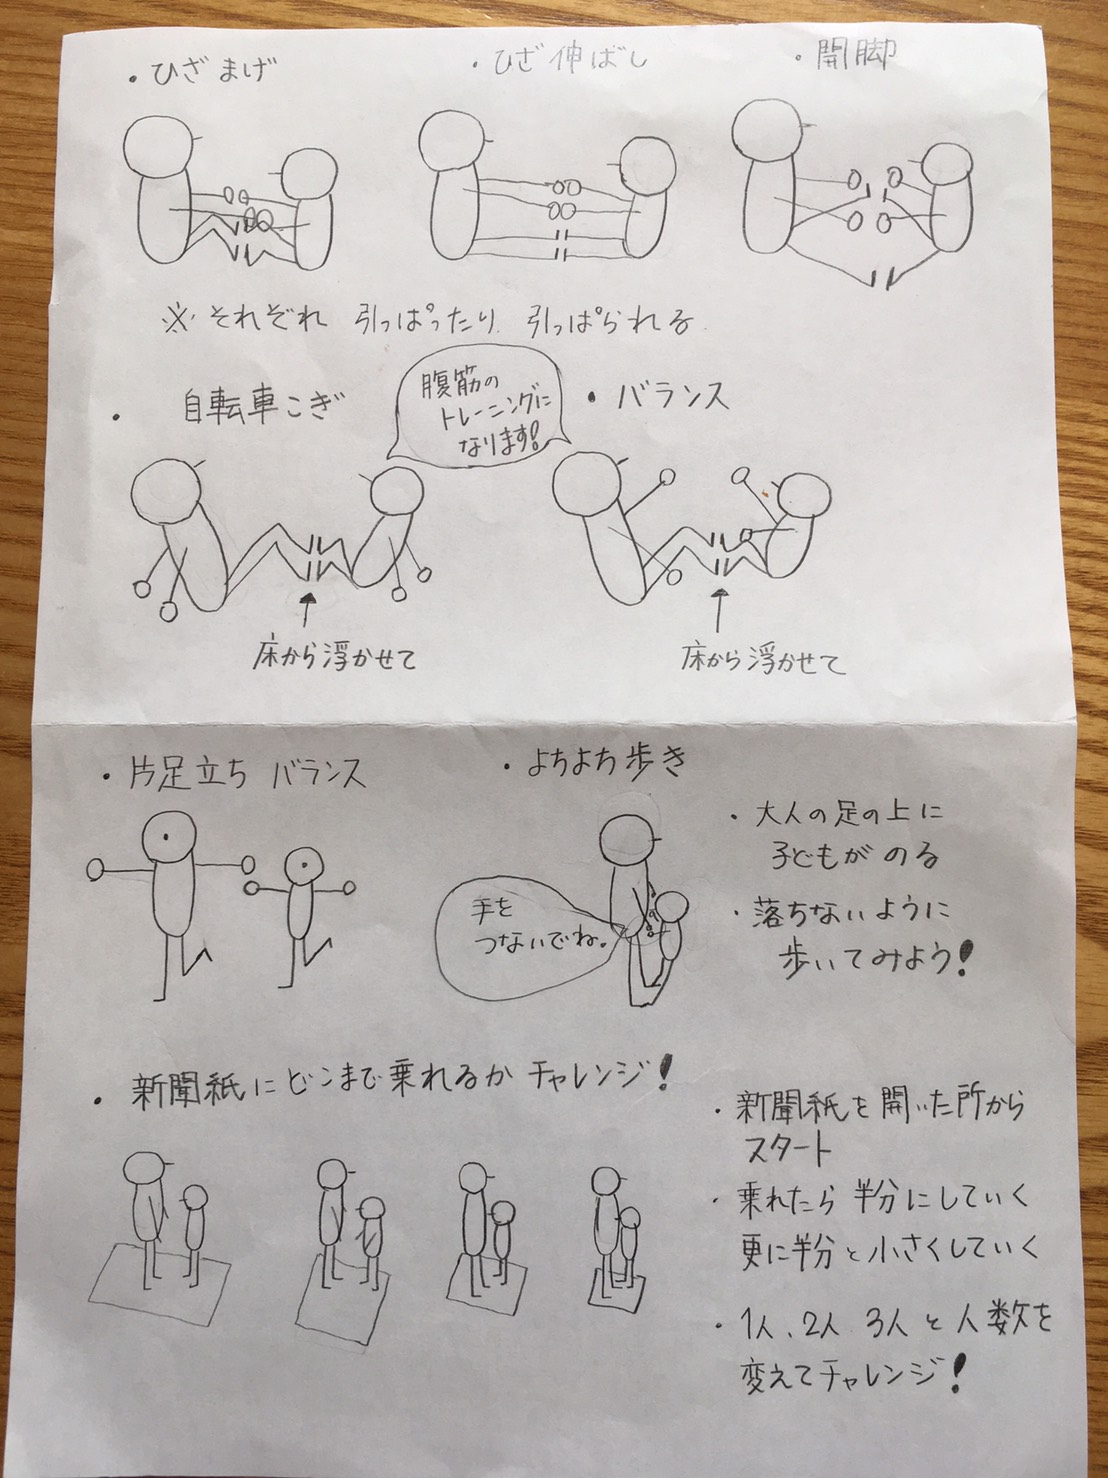 ・ひざまげ
・ひざ伸ばし
・開脚
※それぞれ 引っぱったり 引っぱられる
・自転車こぎ
腹筋の
トレーニングに
なります!
・バランス
床から浮かせて
床から浮かせて
・片足立ち バランス
・よちよち歩き
手を
つないでね。
・大人の足の上に
子どもが のる
・落ちないように
歩いてみよう!
・新聞紙にどこまで乗れるか チャレンジ!
・新聞紙を開いた所から
スタート
・乗れたら 半分にしていく
更に半分と小さくしていく
・1人、2人 3人と人数を
変えてチャレンジ!